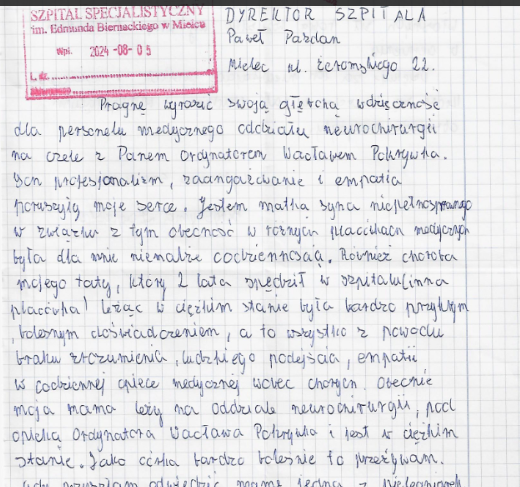 SZPITAL SPECJALISTYCZNY
im. Edmunda Biernackiego w Mielcu
Wpł. 2024 -08- 05
L. dz.
DYREKTOR SZPITALA
Paweł Pazdan
Mielec ul. Żeromskiego 22.
Pragnę wyrazić swoją głęboką wdzięczność
dla personelu medycznego oddziału neurochirurgii
na czele z Panem Ordynatorem Wacławem Pokrywka.
profesjonalizm, zaangażowanie i empatia
poruszyły moje serce. Jestem matką syna niepełnosprawnego
w związku z tym obecność w różnych placówkach medycznych
była dla mnie niemalże codziennością. Również choroba
mojego taty, który 2 lata spędził w szpitalu (inna
placówka) leżąc w ciężkim stanie była bardzo przykrym
, bolesnym doświadczeniem, a to wszystko z powodu
braku zrozumienia, ludzkiego podejścia, empatii
w codziennej opiece medycznej wobec chorych. Obecnie
moja mama leży na oddziale neurochirurgii, pod
opieką Ordynatora Wacława Pokrywka i jest w ciężkim
stanie. Jako córka bardzo boleśnie to przeżywam.
przyszłam odwiedzić mamę jedna z pielęgniarek